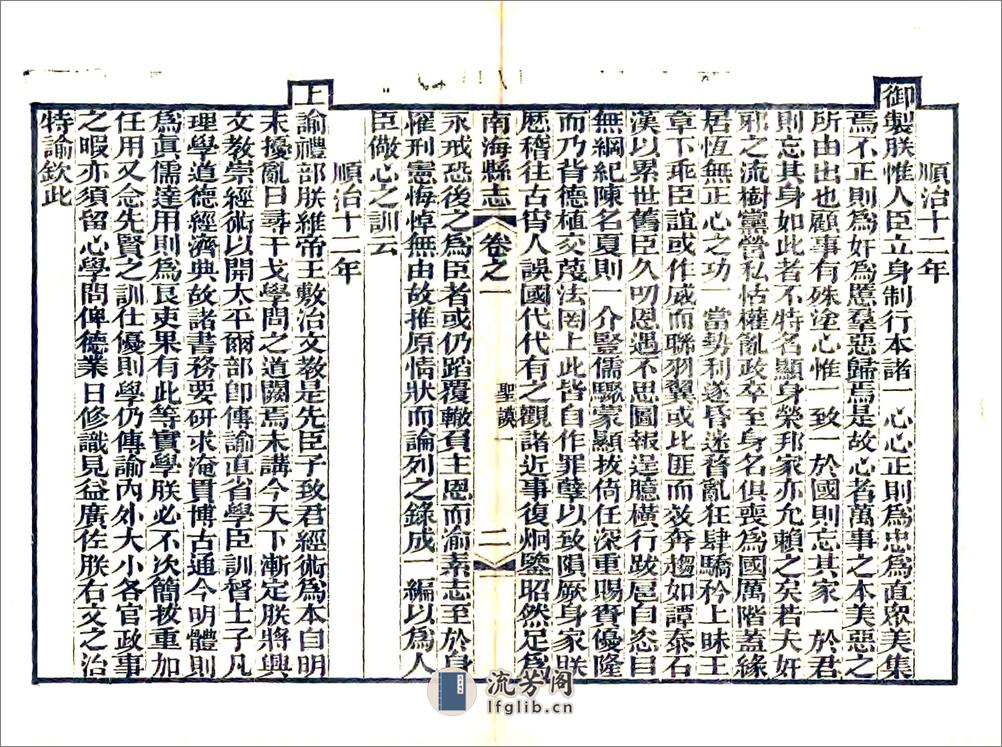 順治十二年
御製朕惟人臣立身制行本諸一心心正則為忠為直眾美集
焉不正則為奸為慝羣惡歸焉是故心者萬事之本美惡之
所由出也顧事有殊塗心惟一致一於國則忘其家一於君
則忘其身如此者不特名顯身榮邦家亦允賴之矣若夫奸
邪之流樹黨營私怙權亂政卒至身名俱喪為國厲階蓋緣
居恆無正心之功一當勢利遂昏迷瞀亂狂肆驕矜上昧王
章下乖臣誼或作威而聯羽翼或比匪而效奔趨如譚泰石
漢以累世舊臣久叨恩遇不思圖報逞臆橫行跋扈自恣目
無綱紀陳名夏則一介豎儒驟蒙顯拔倚任深重賜賚優隆
而乃背德植交蔑法罔上此皆自作罪孽以致隕厥身家朕
歷稽往古宵人誤國代代有之觀諸近事復炯鑒昭然足為
南海縣志
卷之一
聖謨一
二
永戒恐後之為臣者或仍蹈覆轍負主恩而渝素志至於身
罹刑憲悔悼無由故推原情狀而論列之錄成一編以為人
臣儆心之訓云
順治十二年
上諭禮部朕維帝王敷治文教是先臣子致君經術為本自明
末擾亂日尋干戈學問之道闕焉未講今天下漸定朕將興
文教崇經術以開太平爾部即傳諭直省學臣訓督士子凡
理學道德經濟典故諸書務要研求淹貫博古通今明體則
為眞儒達用則為良吏果有此等實學朕必不次簡拔重加
任用又念先賢之訓仕優則學仍傳諭內外大小各官政事
之暇亦須留心學問俾德業日修識見益廣佐朕右文之治
特諭欽此
流芳阁
lfglib.cn